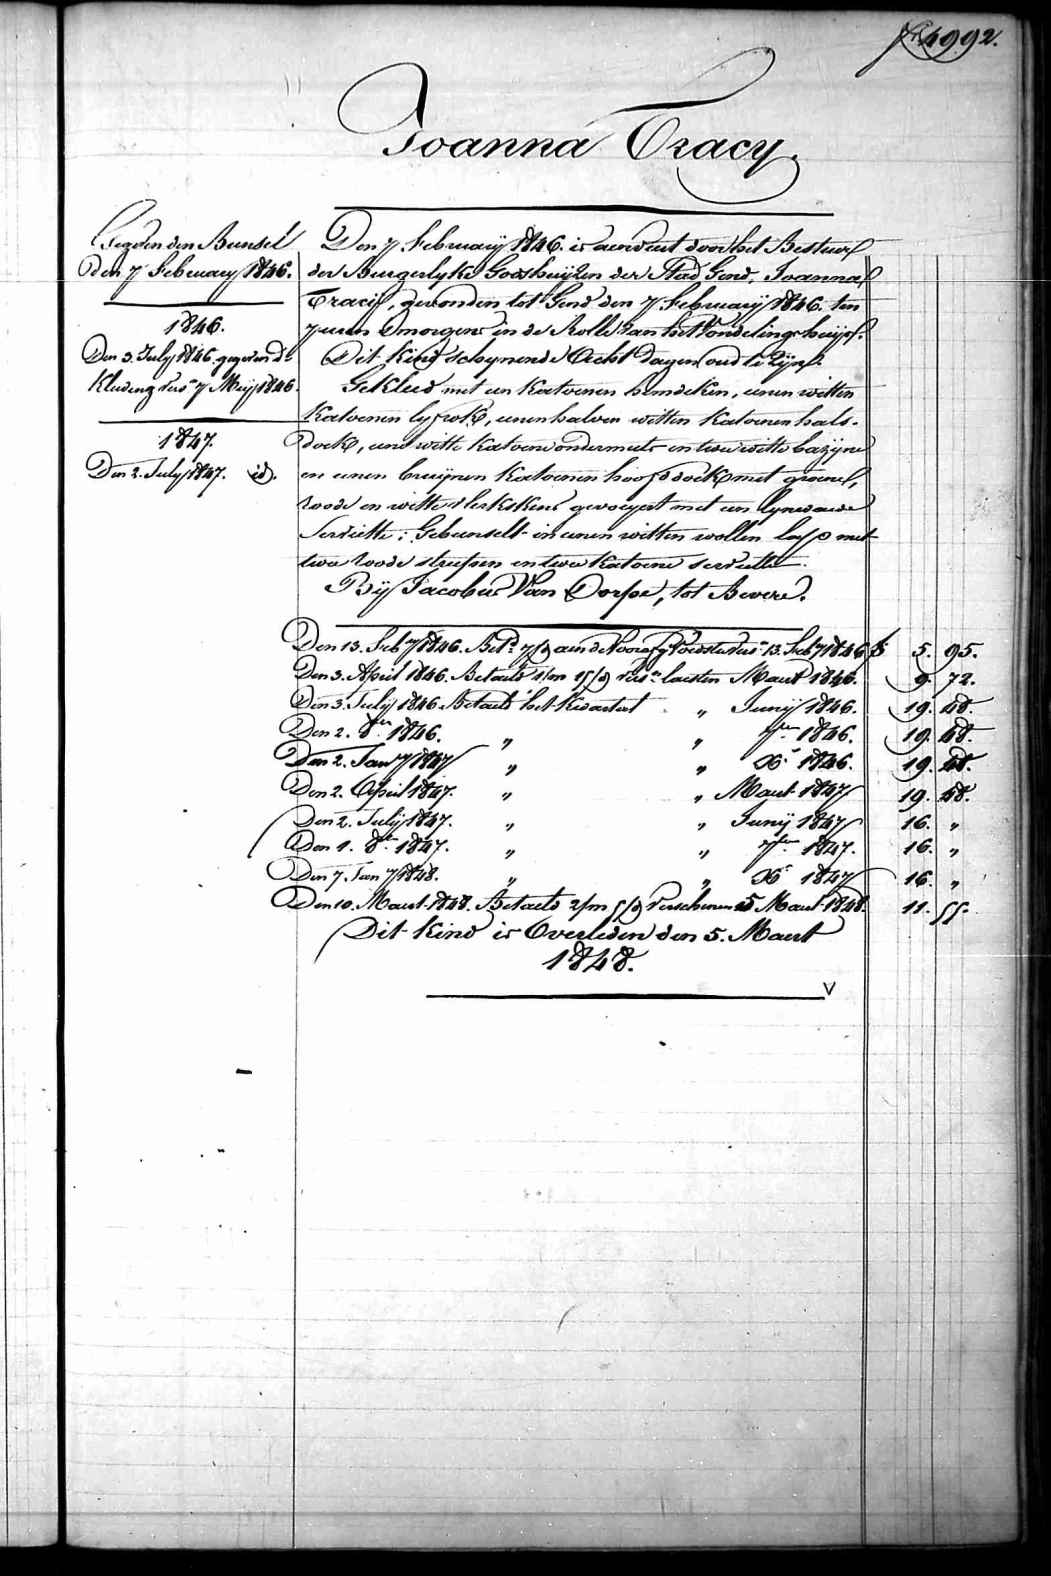 4992.
Joanna Tracy.
Gegeven den Bunsel
den 7 February 1846.
1846.
Den 3. July 1846. gegeven de
Kleding vers. 7 Meij 1846.
1847.
Den 2. July 1847. id.
Den 7 Februarij 1846. is aenveert door het Bestuur
der Burgerlyke Godshuijzen der Stad Gend, Joanna
Tracij, gevonden tot Gend den 7 Februarij 1846. ten
7 uren Smorgens in de Rolle van het Vondelingshuijs.
Dit Kind schynende Acht dagen oud te Zijn.
Gekleed met een Katoenen hemdeken, eenen witten
Katoenen lyfrok, eenen halven witten Katoenen hals-
doek, eene witte Katoene ondermuts en twee witte bazijne
en eenen bruijnen Katoenen hoofddoek met groene,
roode en witte vlekskens gevoeijert met een lynwaede
Serviette; Gebunselt in eenen witten wollen lap met
twee roode streepen en twee Katoene servietten.
Bij Jacobus Van Dorpe, tot Bevere.
Den 13. Feb 7 1846. Bet. 7/d aen de Voorafg Voedster vers. 13. Feb 7 1846 5. 95.
Den 3. April 1846. Betaeld 1/m 15/d vers. laesten Maert 1846. 9. 72.
Den 3. July 1846 Betaeld het Kwartael " Junij 1846. 19. 48.
Den 2. 8ber 1846. " " 7ber 1846. 19. 48.
Den 2. Jan 7 1847 " " Xr 1846. 19. 48.
Den 2. April 1847. " " Maert 1847 19. 48.
Den 2. Julij 1847. " " Junij 1847 16. "
Den 1. 8br 1847. " " 7ber 1847. 16. "
Den 7. Jan 7 1848. " " Xr 1847 16. "
Den 10. Maert 1848. Betaeld 2/m 5/d verschenen 5 Maert 1848. 11. 55.
Dit Kind is Overleden den 5. Maert
1848.